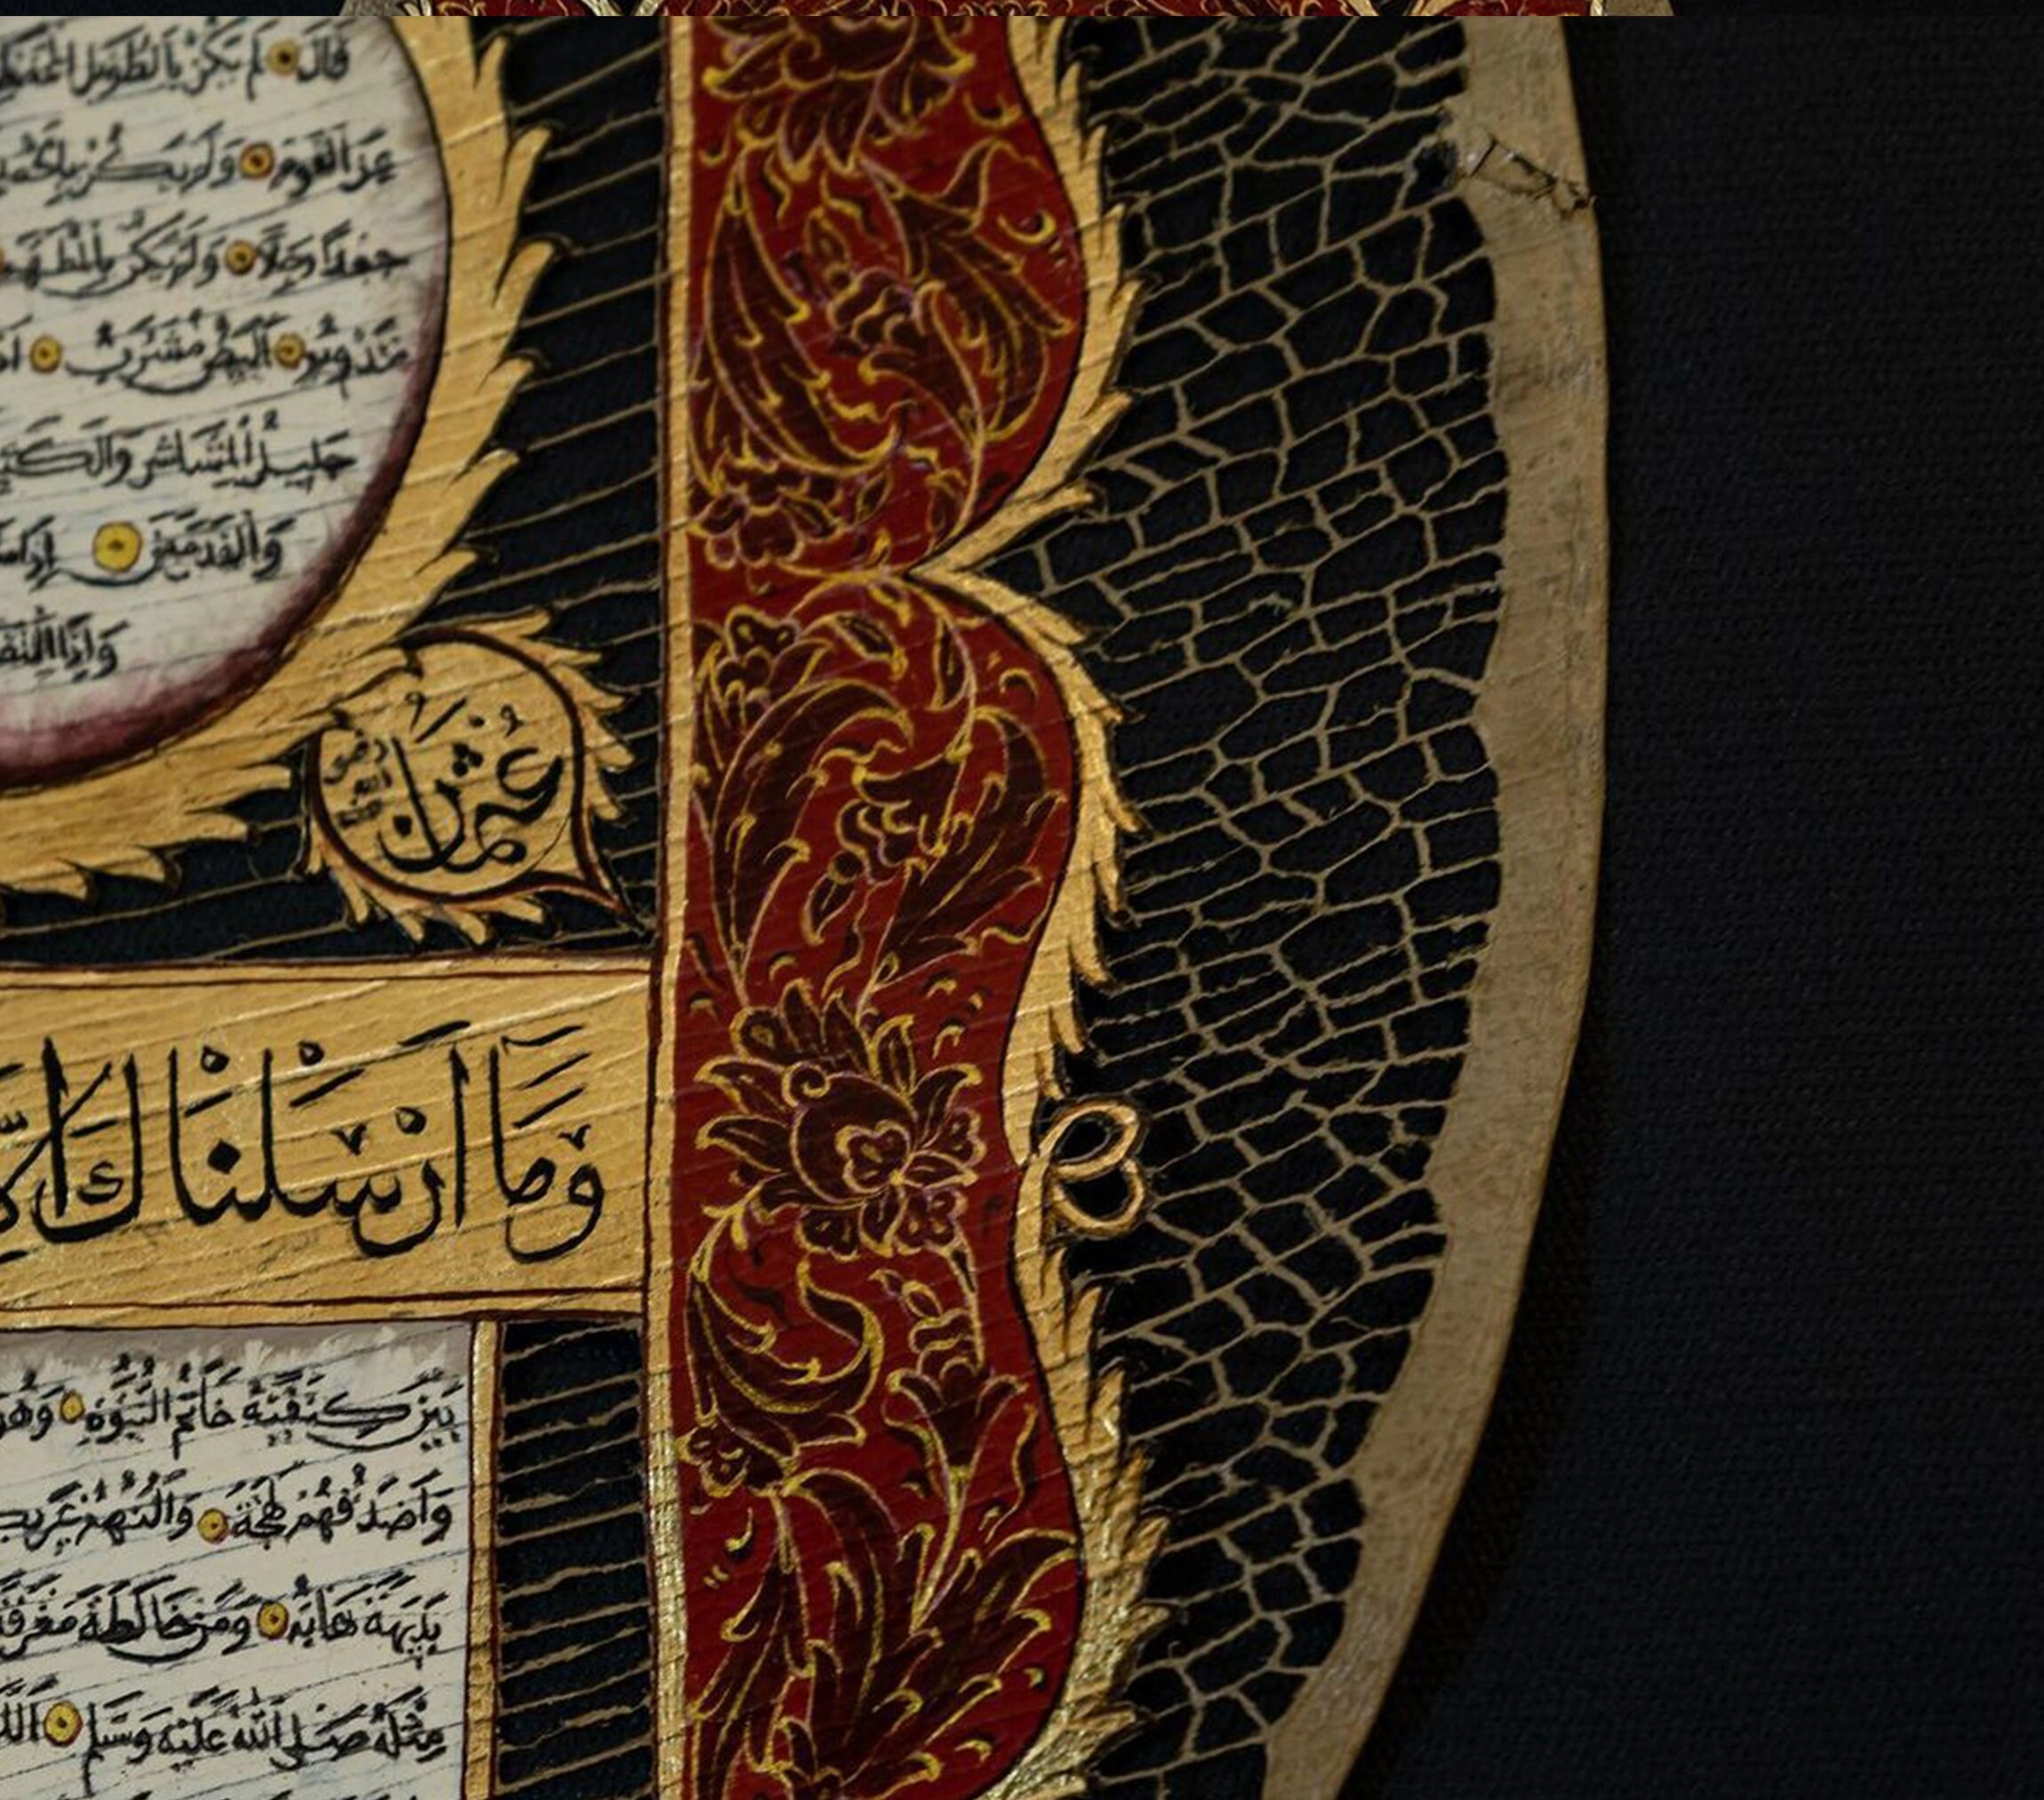 قَالَ لَمْ يَكُنْ بِالطَّوِيلِ الْمُمَّغِطِ
مِنَ الْقَوْمِ وَلَمْ يَكُنْ بِالْجَعْدِ
جَعْدًا رَجِلًا وَلَمْ يَكُنْ بِالْمُطَهَّمِ
تَدْوِيرٌ أَبْيَضُ مُشْرَبٌ
جَلِيلُ الْمُشَاشِ وَالْكَتَدِ
وَالْقَدَمَيْنِ إِذَا
وَإِذَا الْتَفَتَ
عُثْمَانُ
وَمَا أَرْسَلْنَاكَ إِلَّا
بَيْنَ كَتِفَيْهِ خَاتَمُ النُّبُوَّةِ وَهُوَ
وَأَصْدَقُهُمْ لَهْجَةً وَأَلْيَنُهُمْ عَرِيكَةً
بَدِيهَةً هَابَهُ وَمَنْ خَالَطَهُ مَعْرِفَةً
مِثْلَهُ صَلَّى اللهُ عَلَيْهِ وَسَلَّمَ